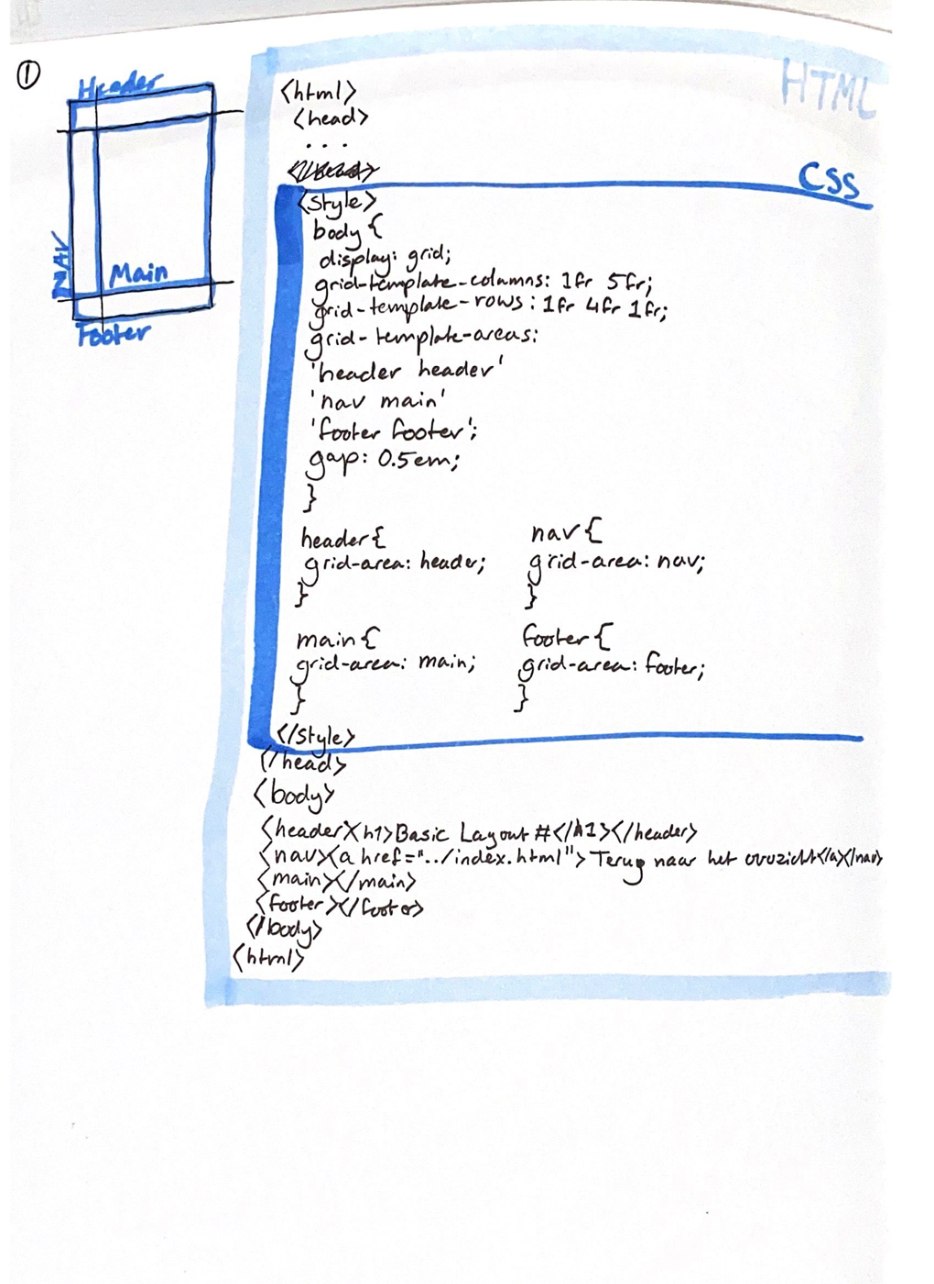 1
Header
NAV
Main
Footer
HTML
<html>
<head>
...
CSS
<style>
body {
display: grid;
grid-template-columns: 1fr 5fr;
grid-template-rows: 1fr 4fr 1fr;
grid-template-areas:
'header header'
'nav main'
'footer footer';
gap: 0.5em;
}
header {
grid-area: header;
}
nav {
grid-area: nav;
}
main {
grid-area: main;
}
footer {
grid-area: footer;
}
</style>
</head>
<body>
<header><h1>Basic Layout #</h1></header>
<nav><a href="../index.html"> Terug naar het</a></nav>
<main></main>
<footer></footer>
</body>
<html>